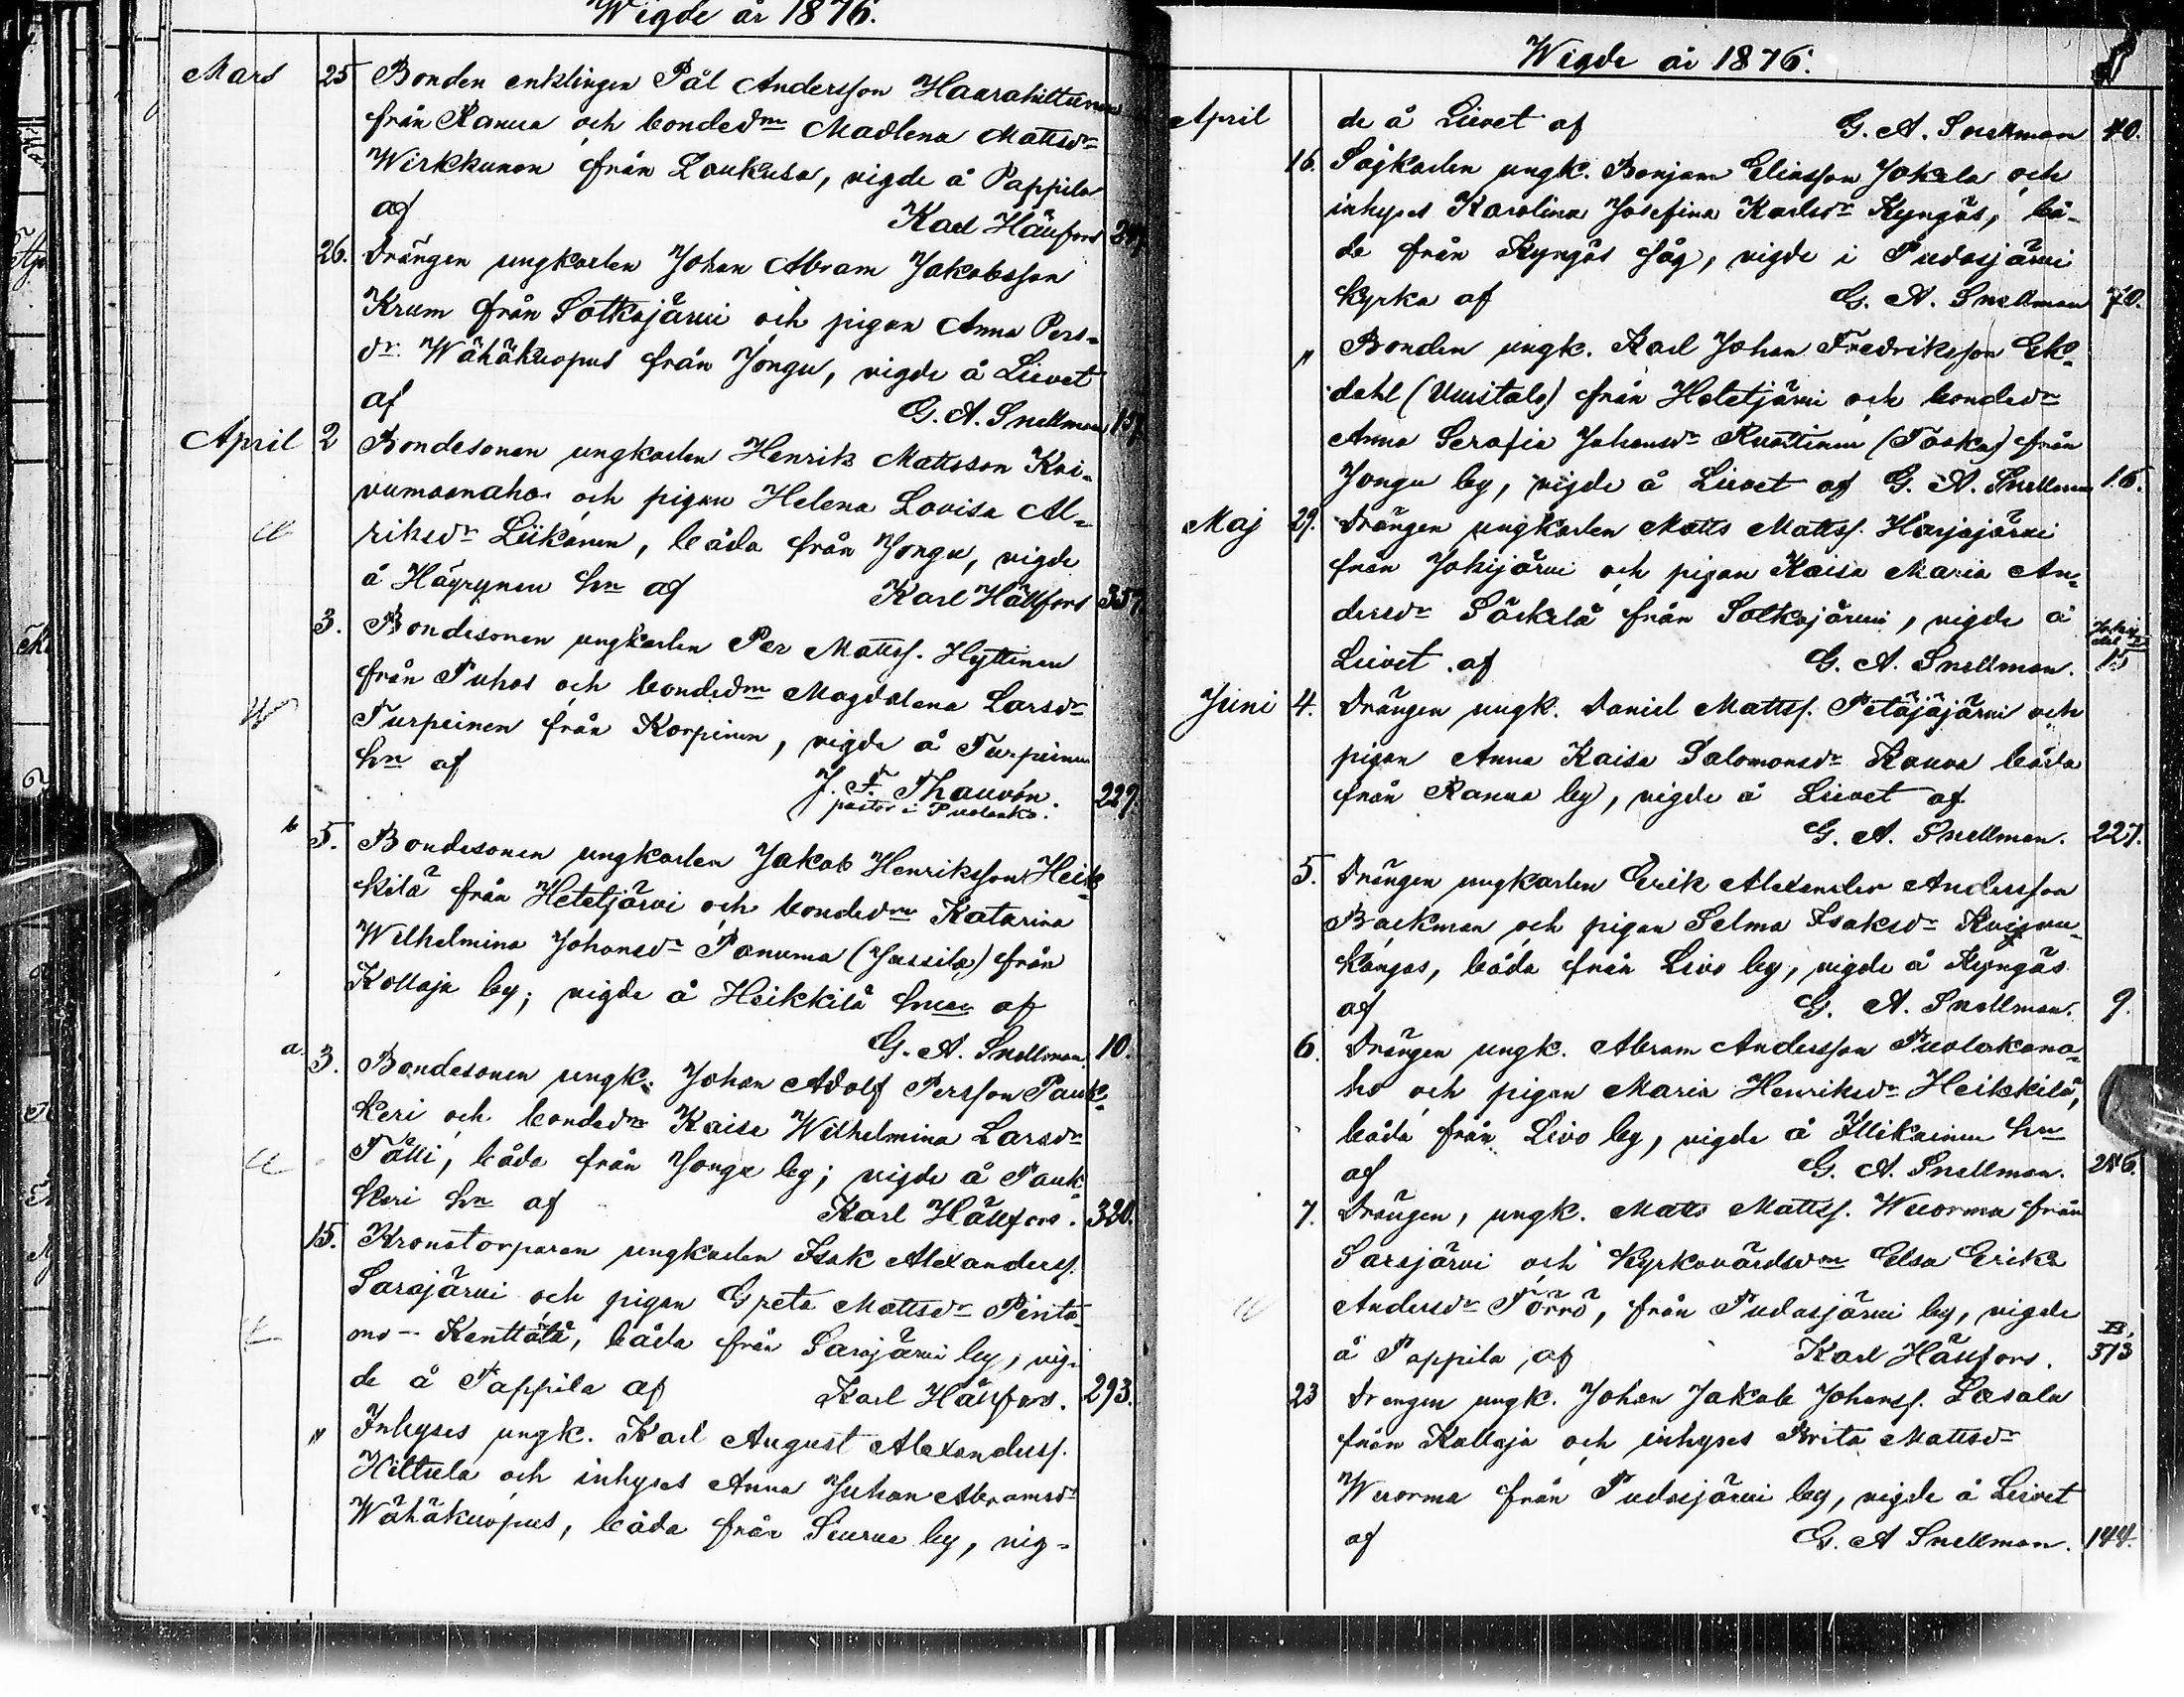 Wigde år 1876.
Mars 25 Bonden enklingen Pål Andersson Haarahiltunen
från Ranua och bondedn Madlena Mattsdr
Wirkkunen från Loukusa, vigde å Pappila
af Karl Hällfors
26. Drängen ungkarlen Johan Abram Jakobsson
Krum från Sotkajärvi och pigan Anna Pers-
dr Wähäkuopus från Jongu, vigde å Liivet
af G. A. Snellman 157
April 2 Bondesonen ungkarlen Henrik Mattsson Koi-
vumaanaho och pigan Helena Lovisa Al-
riksdr Liikanen, båda från Jongu, vigde
å Häyrynen hn af Karl Hällfors 357
3. Bondesonen ungkarlen Per Mattss. Hyttinen
från Puhos och bondedn Magdalena Larsdr
Turpeinen från Korpinen, vigde å Turpeinen
hn af J. F. Thauvón. 229.
pastor i Puolanko.
b 5. Bondesonen ungkarlen Jakob Henriksson Heik-
kilä från Hetetjärvi och bondedn Katarina
Wilhelmina Johansdr Panuma (Jussila) från
Kollaja by; vigde å Heikkilä hman af
G. A. Snellman 10.
a. 3. Bondesonen ungk. Johan Adolf Persson Pauk-
keri och bondedn Kaisa Wilhelmina Larsdr
Tälli, båda från Jongu by; vigde å Pauk-
keri hn af Karl Hällfors. 320.
15. Kronotorparen ungkarlen Isak Alexanderss.
Sarajärvi och pigan Greta Mattsdr Pirita-
mo - Kenttälä, båda från Sarajärvi by, vig-
de å Pappila af Karl Hällfors. 293.
" Inhyses ungk. Karl August Alexanderss.
Hiltula och inhyses Anna Juhan Abramsdr
Wähäkuopus, båda från Siurua by, vig-
Wigde år 1876.
April de å Liivet af G. A. Snellman 40.
16. Sågkarlen ungk. Benjam Eliasson Jokela och
inhyses Karolina Josefina Karlsdr Kyngäs, bå-
da från Kyngäs såg, vigde i Pudasjärvi
kyrka af G. A. Snellman 70.
" Bonden ungk. Karl Johan Fredriksson Ek-
dahl (Uusitalo) från Hetetjärvi och bondedr
Anna Serafia Johansdr Ruottinen (Toska) från
Jongu by, vigde å Liivet af G. A. Snellman 16.
Maj 29. Drängen ungkarlen Matts Mattss. Harjajärvi
från Jokijärvi och pigan Kaisa Maria An-
dersdr Särkelä från Sotkajärvi, vigde å
Liivet af G. A. Snellman. 15
Juni 4. Drängen ungk. Daniel Mattss. Petäjäjärvi och
pigan Anna Kaisa Salomonsdr Kauva båda
från Ranua by, vigde å Liivet af
G. A. Snellman. 227.
5. Drängen ungkarlen Erik Alexander Andersson
Backman och pigan Selma Isaksdr Koivu-
kangas, båda från Livo by, vigde å Kyngäs
af G. A. Snellman. 9.
6. Drängen ungk. Abram Andersson Puolakana-
ho och pigan Maria Henriksdr Heikkilä,
båda från Livo by, vigde å Illikainen hn
af G. A. Snellman. 286.
7. Drängen, ungk. Mats Mattss. Wuorma från
Sarajärvi och kyrkovärdsdn Elsa Erika
Andersdr Törrö, från Pudasjärvi by, vigde
å Pappila af Karl Hällfors. B. 373
23 Drengen ungk. Johan Jakob Johanss. Lasala
från Kollaja och inhyses Brita Mattsdr
Wuorma från Pudasjärvi by, vigde å Liivet
af G. A Snellman. 144.